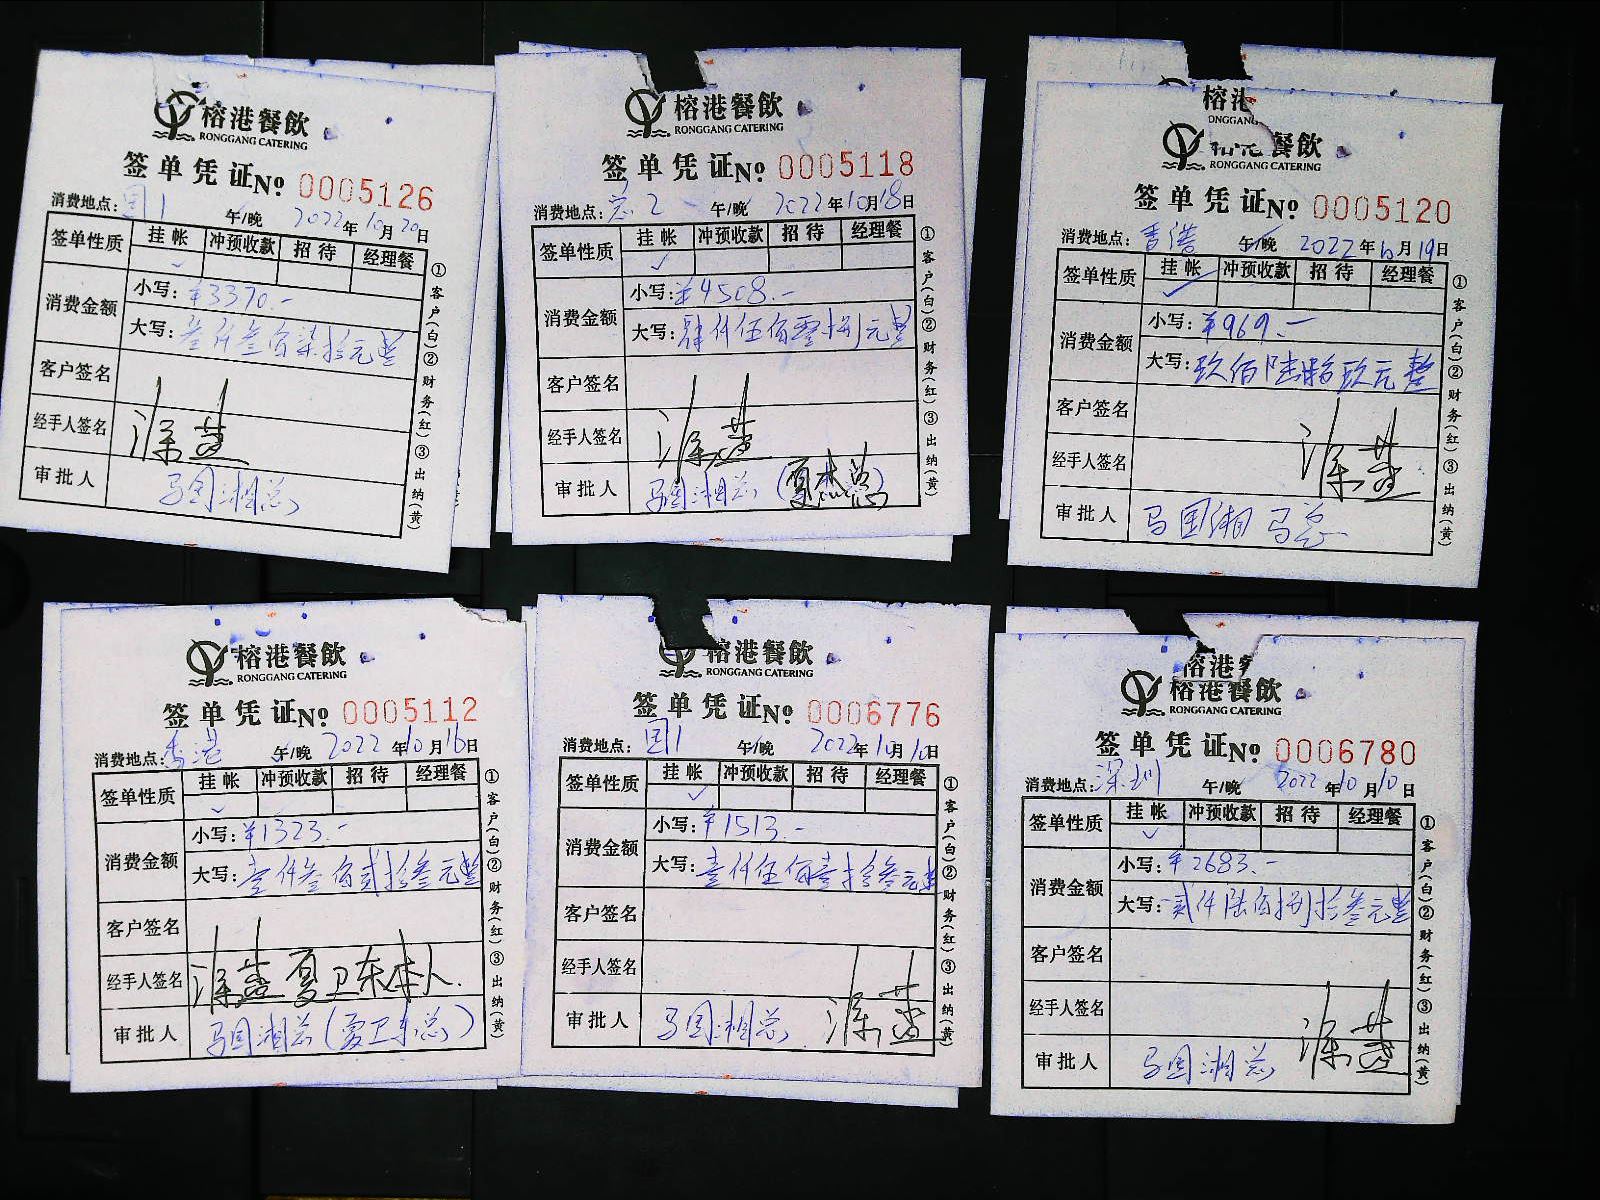 榕港餐飲
RONGGANG CATERING
签单凭证№ 0005126
消费地点：国1 午/晚 2022年10月20日
签单性质 挂帐 冲预收款 招待 经理餐
✓
消费金额 小写：¥3370.-
大写：叁仟叁佰柒拾元整
客户签名
经手人签名 涂
审批人 马国湘总
①客户(白)②财务(红)③出纳(黄)
榕港餐飲
RONGGANG CATERING
签单凭证№ 0005118
消费地点：总2 午/晚 2022年10月18日
签单性质 挂帐 冲预收款 招待 经理餐
✓
消费金额 小写：¥4508.-
大写：肆仟伍佰零捌元整
客户签名
经手人签名 涂
审批人 马国湘总
①客户(白)②财务(红)③出纳(黄)
榕港
ONGGANG
餐飲
RONGGANG CATERING
签单凭证№ 0005120
消费地点：香港 午/晚 2022年10月19日
签单性质 挂帐 冲预收款 招待 经理餐
✓
消费金额 小写：¥969.-
大写：玖佰陆拾玖元整
客户签名
经手人签名 涂
审批人 马国湘 马总
①客户(白)②财务(红)③出纳(黄)
榕港餐飲
RONGGANG CATERING
签单凭证№ 0005112
消费地点：香港 午/晚 2022年10月16日
签单性质 挂帐 冲预收款 招待 经理餐
✓
消费金额 小写：¥1323.-
大写：壹仟叁佰贰拾叁元整
客户签名
经手人签名 涂 夏卫东本人.
审批人 马国湘总(夏卫东总)
①客户(白)②财务(红)③出纳(黄)
榕港餐飲
RONGGANG CATERING
签单凭证№ 0006776
消费地点：国1 午/晚 2022年10月10日
签单性质 挂帐 冲预收款 招待 经理餐
✓
消费金额 小写：¥1513.-
大写：壹仟伍佰壹拾叁元整
客户签名
经手人签名
审批人 马国湘总 涂
①客户(白)②财务(红)③出纳(黄)
榕港
榕港餐飲
RONGGANG CATERING
签单凭证№ 0006780
消费地点：深圳 午/晚 2022年10月10日
签单性质 挂帐 冲预收款 招待 经理餐
✓
消费金额 小写：¥2683.-
大写：贰仟陆佰捌拾叁元整
客户签名
经手人签名 涂
审批人 马国湘总
①客户(白)②财务(红)③出纳(黄)